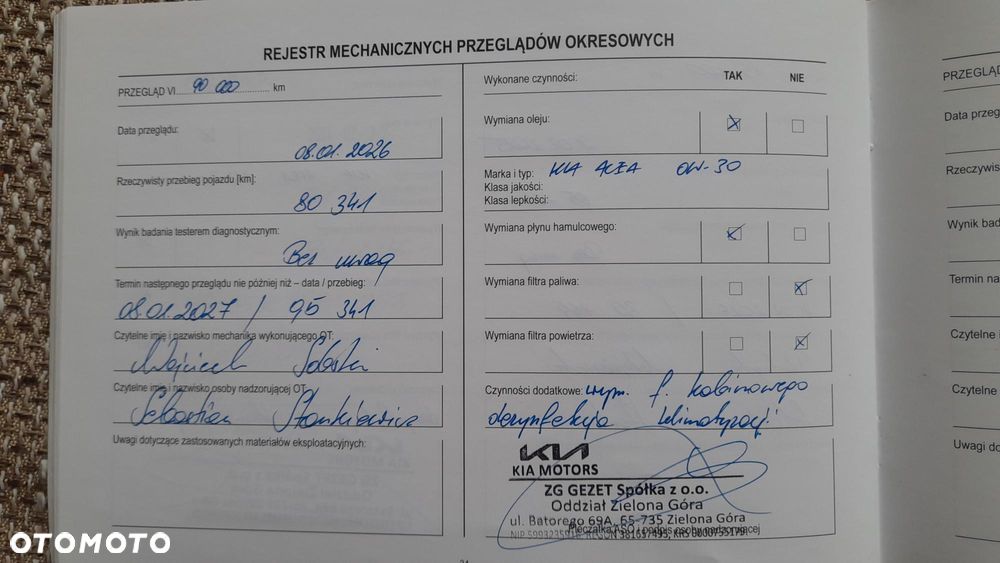 REJESTR MECHANICZNYCH PRZEGLĄDÓW OKRESOWYCH
PRZEGLĄD VI 90 000 km
Data przeglądu:
08.01.2026
Rzeczywisty przebieg pojazdu [km]:
80 341
Wynik badania testerem diagnostycznym:
Bez uwag
Termin następnego przeglądu nie później niż – data / przebieg:
08.01.2027 / 95 341
Czytelne imię i nazwisko mechanika wykonującego OT:
Wojciech
Czytelne imię i nazwisko osoby nadzorującej OT:
Sebastian Stankiewicz
Uwagi dotyczące zastosowanych materiałów eksploatacyjnych:
Wykonane czynności: TAK NIE
Wymiana oleju:
Marka i typ: KIA 0W-30
Klasa jakości:
Klasa lepkości:
Wymiana płynu hamulcowego:
Wymiana filtra paliwa:
Wymiana filtra powietrza:
Czynności dodatkowe: wym. f. kabinowego
dezynfekcja klimatyzacji
KIA
KIA MOTORS
ZG GEZET Spółka z o.o.
Oddział Zielona Góra
ul. Batorego 69A, 65-735 Zielona Góra
Pieczątka ASO i podpis osoby nadzorującej
PRZEGLĄD
Data przeg
Rzeczywis
Wynik bad
Termin na
Czytelne
Czytelne
Uwagi do
OTOMOTO